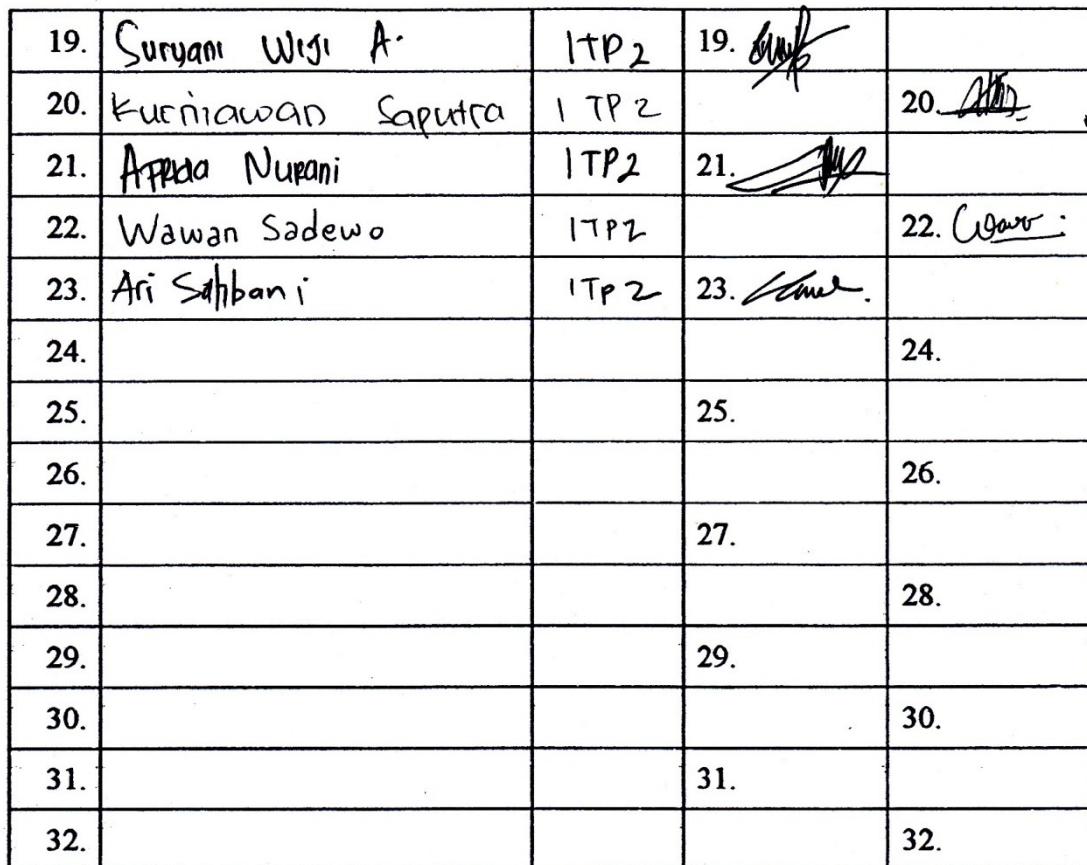 19. Suryani Wigi A. ITP 2 19.
20. Kurniawan Saputra I TP 2 20.
21. Nurani ITP2 21.
22. Wawan Sadewo ITP2 22.
23. Ari ITP 2 23.
24. 24.
25. 25.
26. 26.
27. 27.
28. 28.
29. 29.
30. 30.
31. 31.
32. 32.